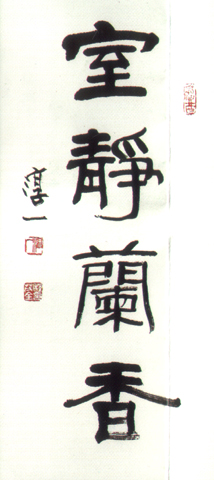 室靜蘭香
淳一